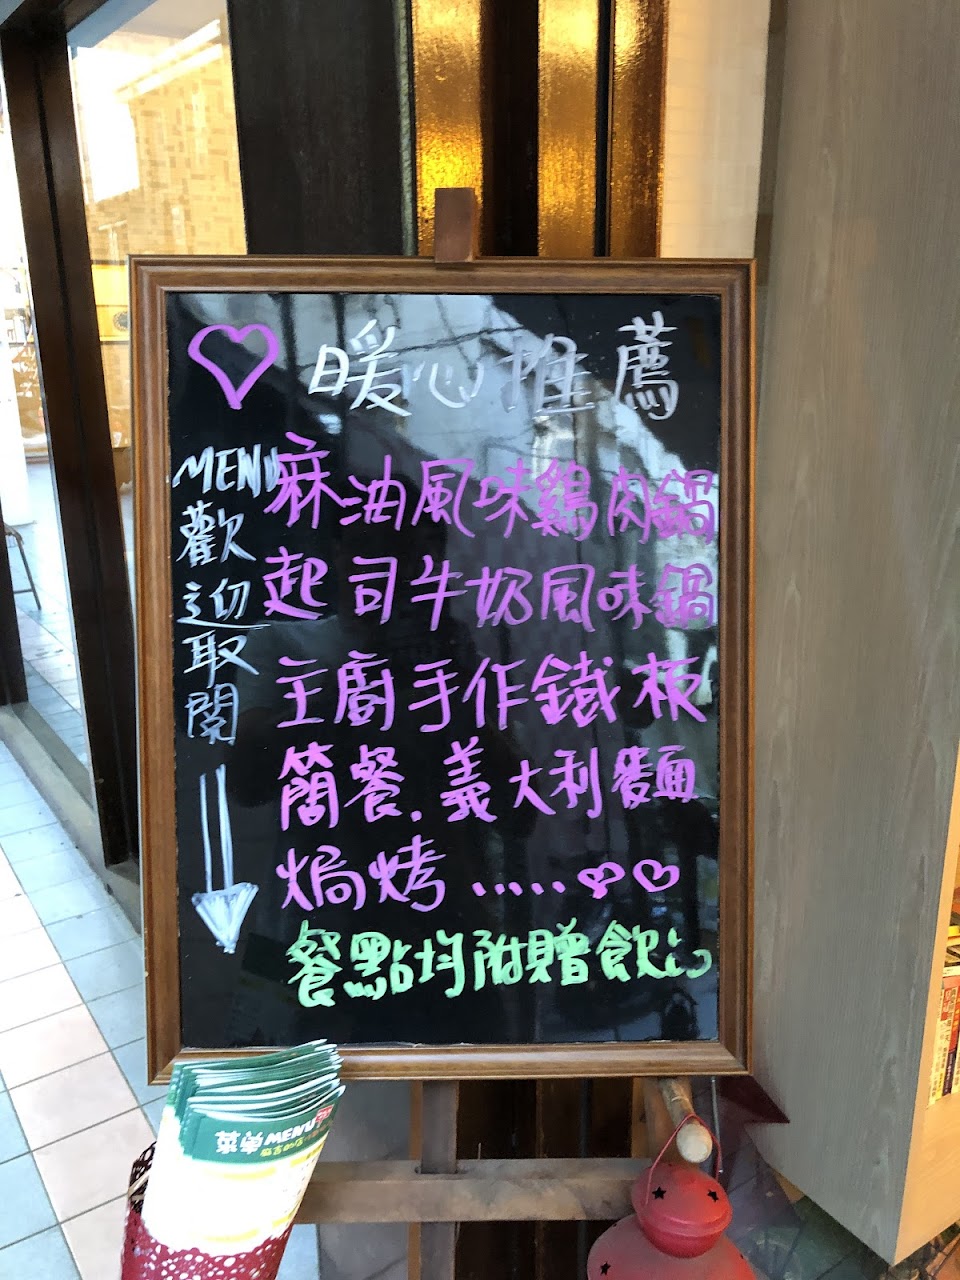 暖心推薦
MENU
歡迎取閱
麻油風味鷄肉鍋
起司牛奶風味鍋
主廚手作鐵板
簡餐.義大利麵
焗烤.....
餐點均附贈飲品
菜單MENU